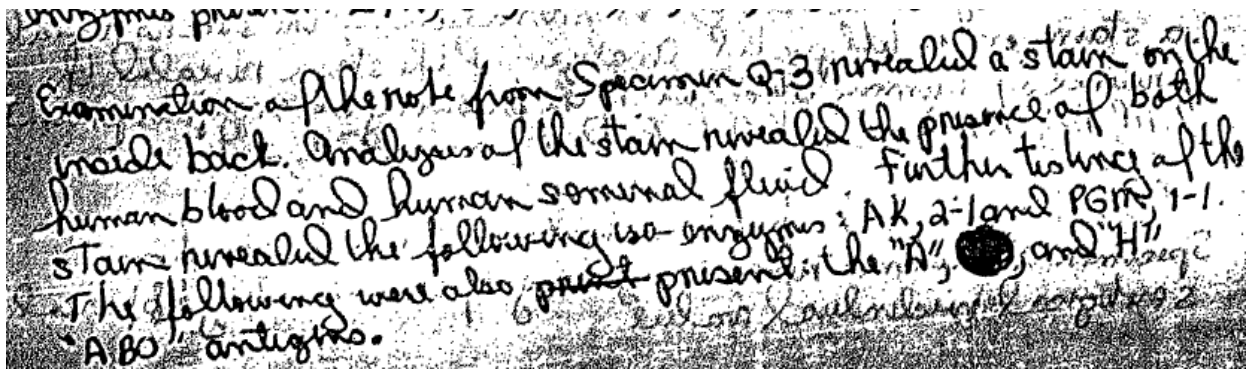 enzymes present
Examination of the robe from Specimen Q-3 revealed a stain on the
inside back. Analyses of the stain revealed the presence of both
human blood and human seminal fluid. Further testing of the
stain revealed the following iso-enzymes: AK, 2-1 and PGM, 1-1.
The following were also present: the "A", and "H"
"ABO" antigens.